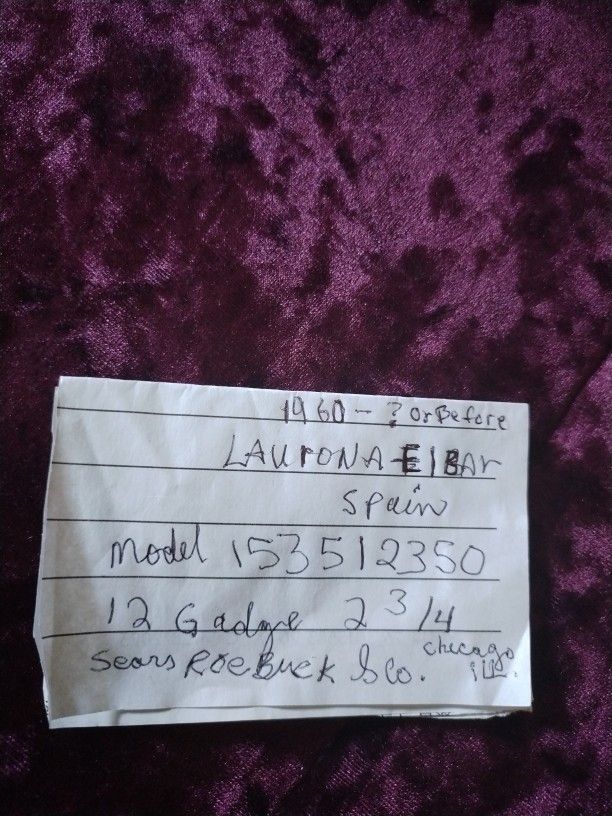 1960 - ? OrBefore
LAUrONA EIBAr
Spain
Model 153512350
12 Gadge 2 3/4
Sears ROEBuck & Co. chicago ILL.